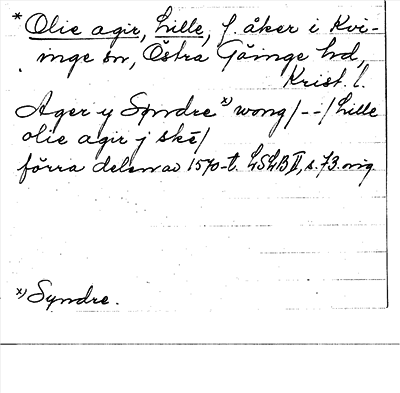 * Olie agir, Lille, f. åker i Kvi-
inge sn, Östra Göinge hd,
Krist. l.
Ager y Syndre x) wong/--/Lille
olie agir j skë/
förra delen av 1570-t. LSLB II, s. 73. orig.
x) Syndre.